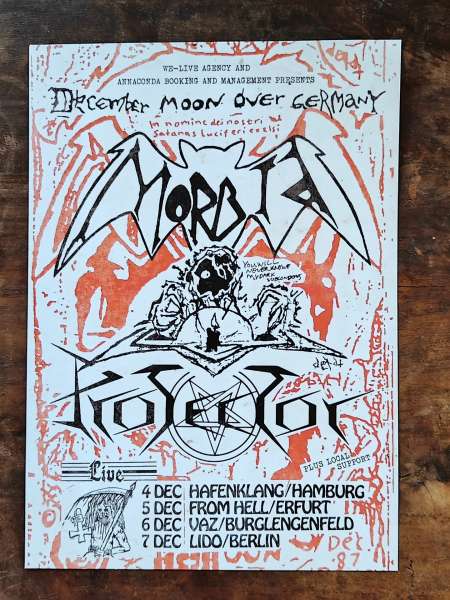 WE-LIVE AGENCY AND
ANNACONDA BOOKING AND MANAGEMENT PRESENTS
DECEMBER MOON OVER GERMANY
In nomine dei nostri
Satanas luciferi excelsi
MORBID
YOU WILL
NEVER KNOW
MY DARK
PROTECTOR
PLUS LOCAL
SUPPORT
Live
4 DEC HAFENKLANG/HAMBURG
5 DEC FROM HELL/ERFURT
6 DEC VAZ/BURGLENGENFELD
7 DEC LIDO/BERLIN
Dec
87